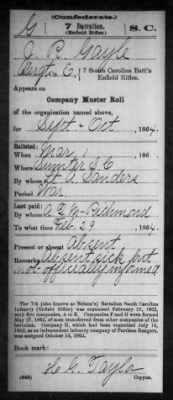 G
(Confederate.)
7 Battalion,
(Enfield Rifles).
S. C.
J. R. Gayle
Sergt Co. E, 7 South Carolina Batt'n
Enfield Rifles.
Appears on
Company Muster Roll
of the organization named above,
for Sept - Oct, 1864.
Enlisted:
When Mar 1, 186
Where Sumter S C
By whom Lt A. Sanders
Period War
Last paid:
By whom Richmond
To what time Feb 29, 1864.
Present or absent Absent
Remarks: Absent, sick but
not officially informed
The 7th (also known as Nelson's) Battalion South Carolina
Infantry (Enfield Rifles) was organized February 22, 1862,
with five companies, A to E. Companies F and G were formed
May 1862, of men transferred from other companies of the
battalion. Company H, which had been organized July 14,
1862, as an independent company of Partisan Rangers,
was assigned October 14, 1862.
Book mark:
H G. Taylor
(642)
Copyist.